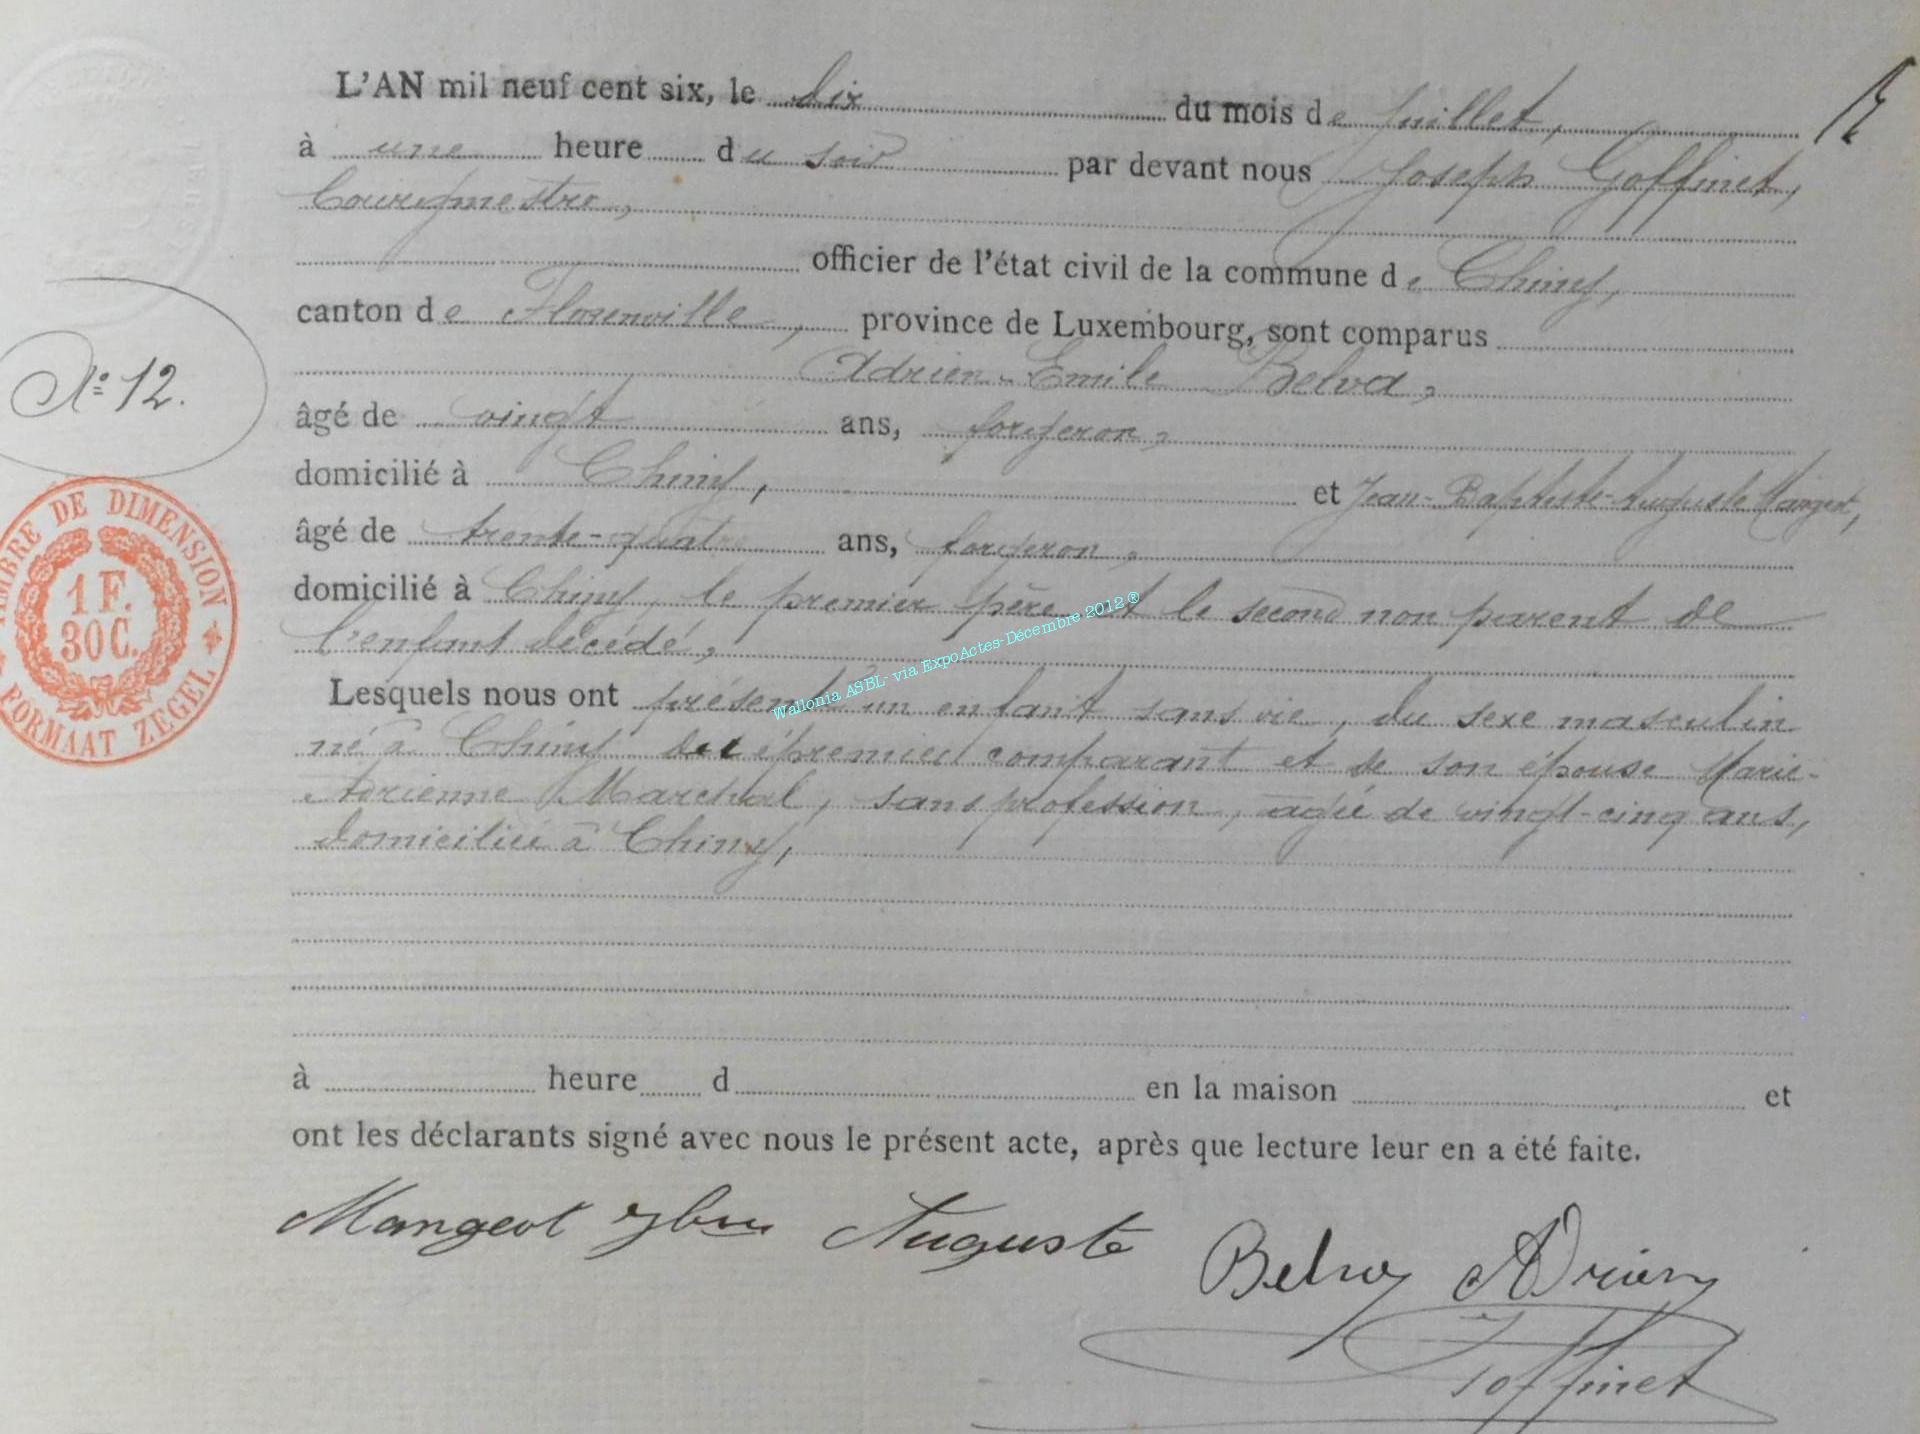 L'AN mil neuf cent six, le dix du mois de juillet,
à une heure du soir par devant nous Joseph Goffinet,
bourgmestre,
officier de l'état civil de la commune de Chiny,
canton de Florenville, province de Luxembourg, sont comparus
Adrien-Emile Belva,
N° 12.
âgé de vingt ans, forgeron,
domicilié à Chiny, et Jean-Baptiste-Auguste Mangeot,
âgé de trente-quatre ans, forgeron,
domicilié à Chiny, le premier père et le second non parent de
l'enfant décédé,
Lesquels nous ont présenté un enfant sans vie, du sexe masculin
né à Chiny premier comparant et de son épouse Marie-
Adrienne Marchal, sans profession, agée de vingt-cinq ans,
domiciliée à Chiny,
à heure d en la maison et
ont les déclarants signé avec nous le présent acte, après que lecture leur en a été faite.
Mangeot Auguste
Belva Adrien
J Goffinet
TIMBRE DE DIMENSION
1 F.
30 C.
FORMAAT ZEGEL
Wallonia ASBL- via ExpoActes-Décembre 2012 ®